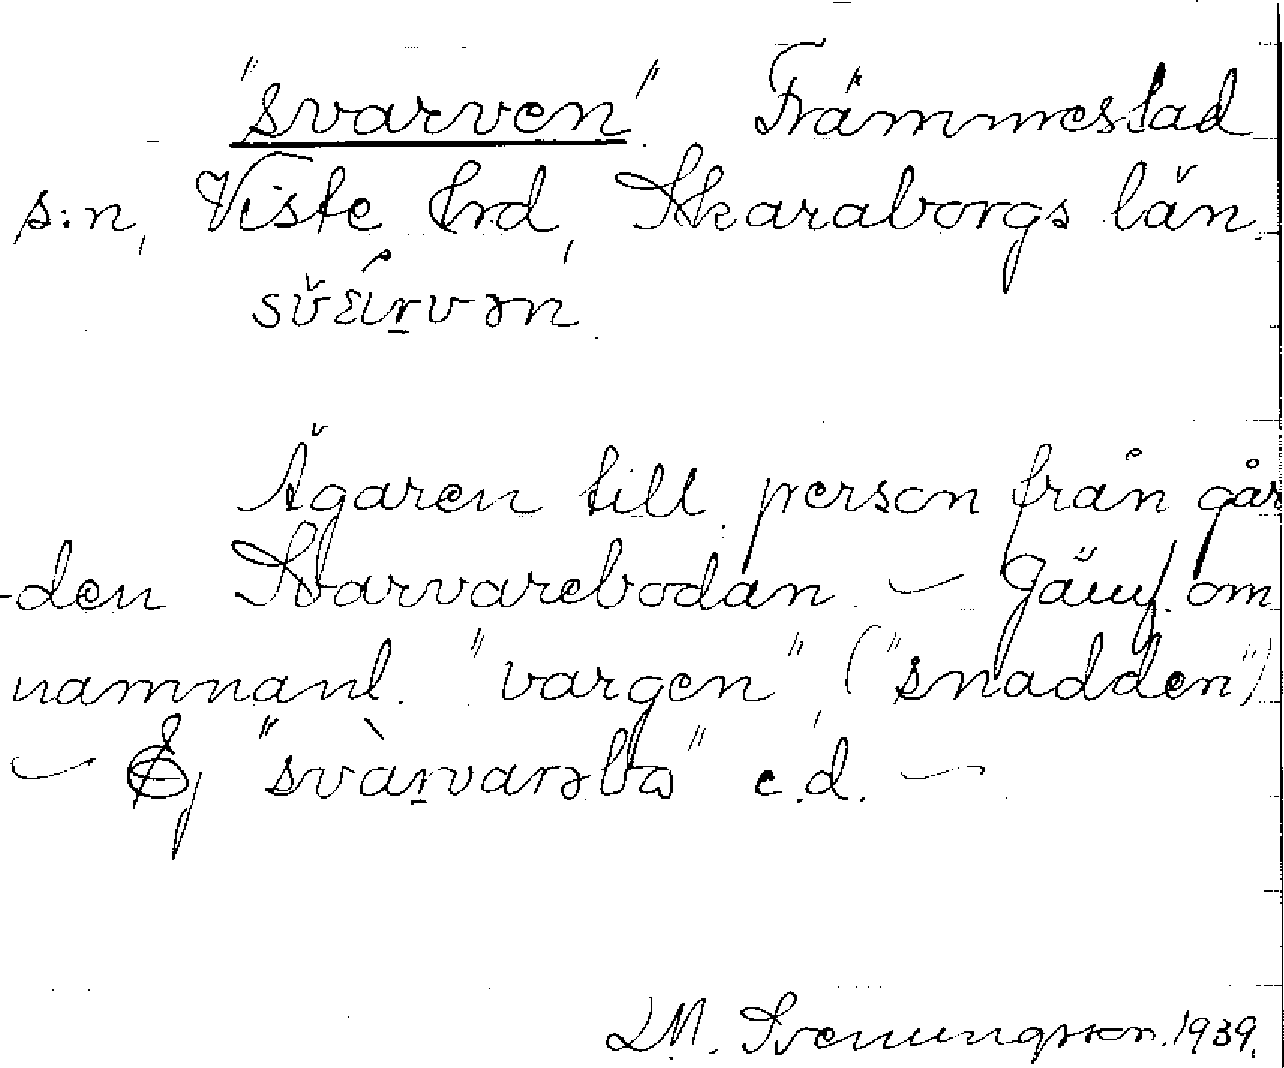 "svarven". Främmestad
s:n, Viste hrd, Skaraborgs län.
Ägaren till person från går
-den Svarvarebodan. – Jämf. om
namnanl. "vargen" ("snadden")
– Ej "svàrvarəbo" e.d. –
L.M. Svenungsson. 1939.